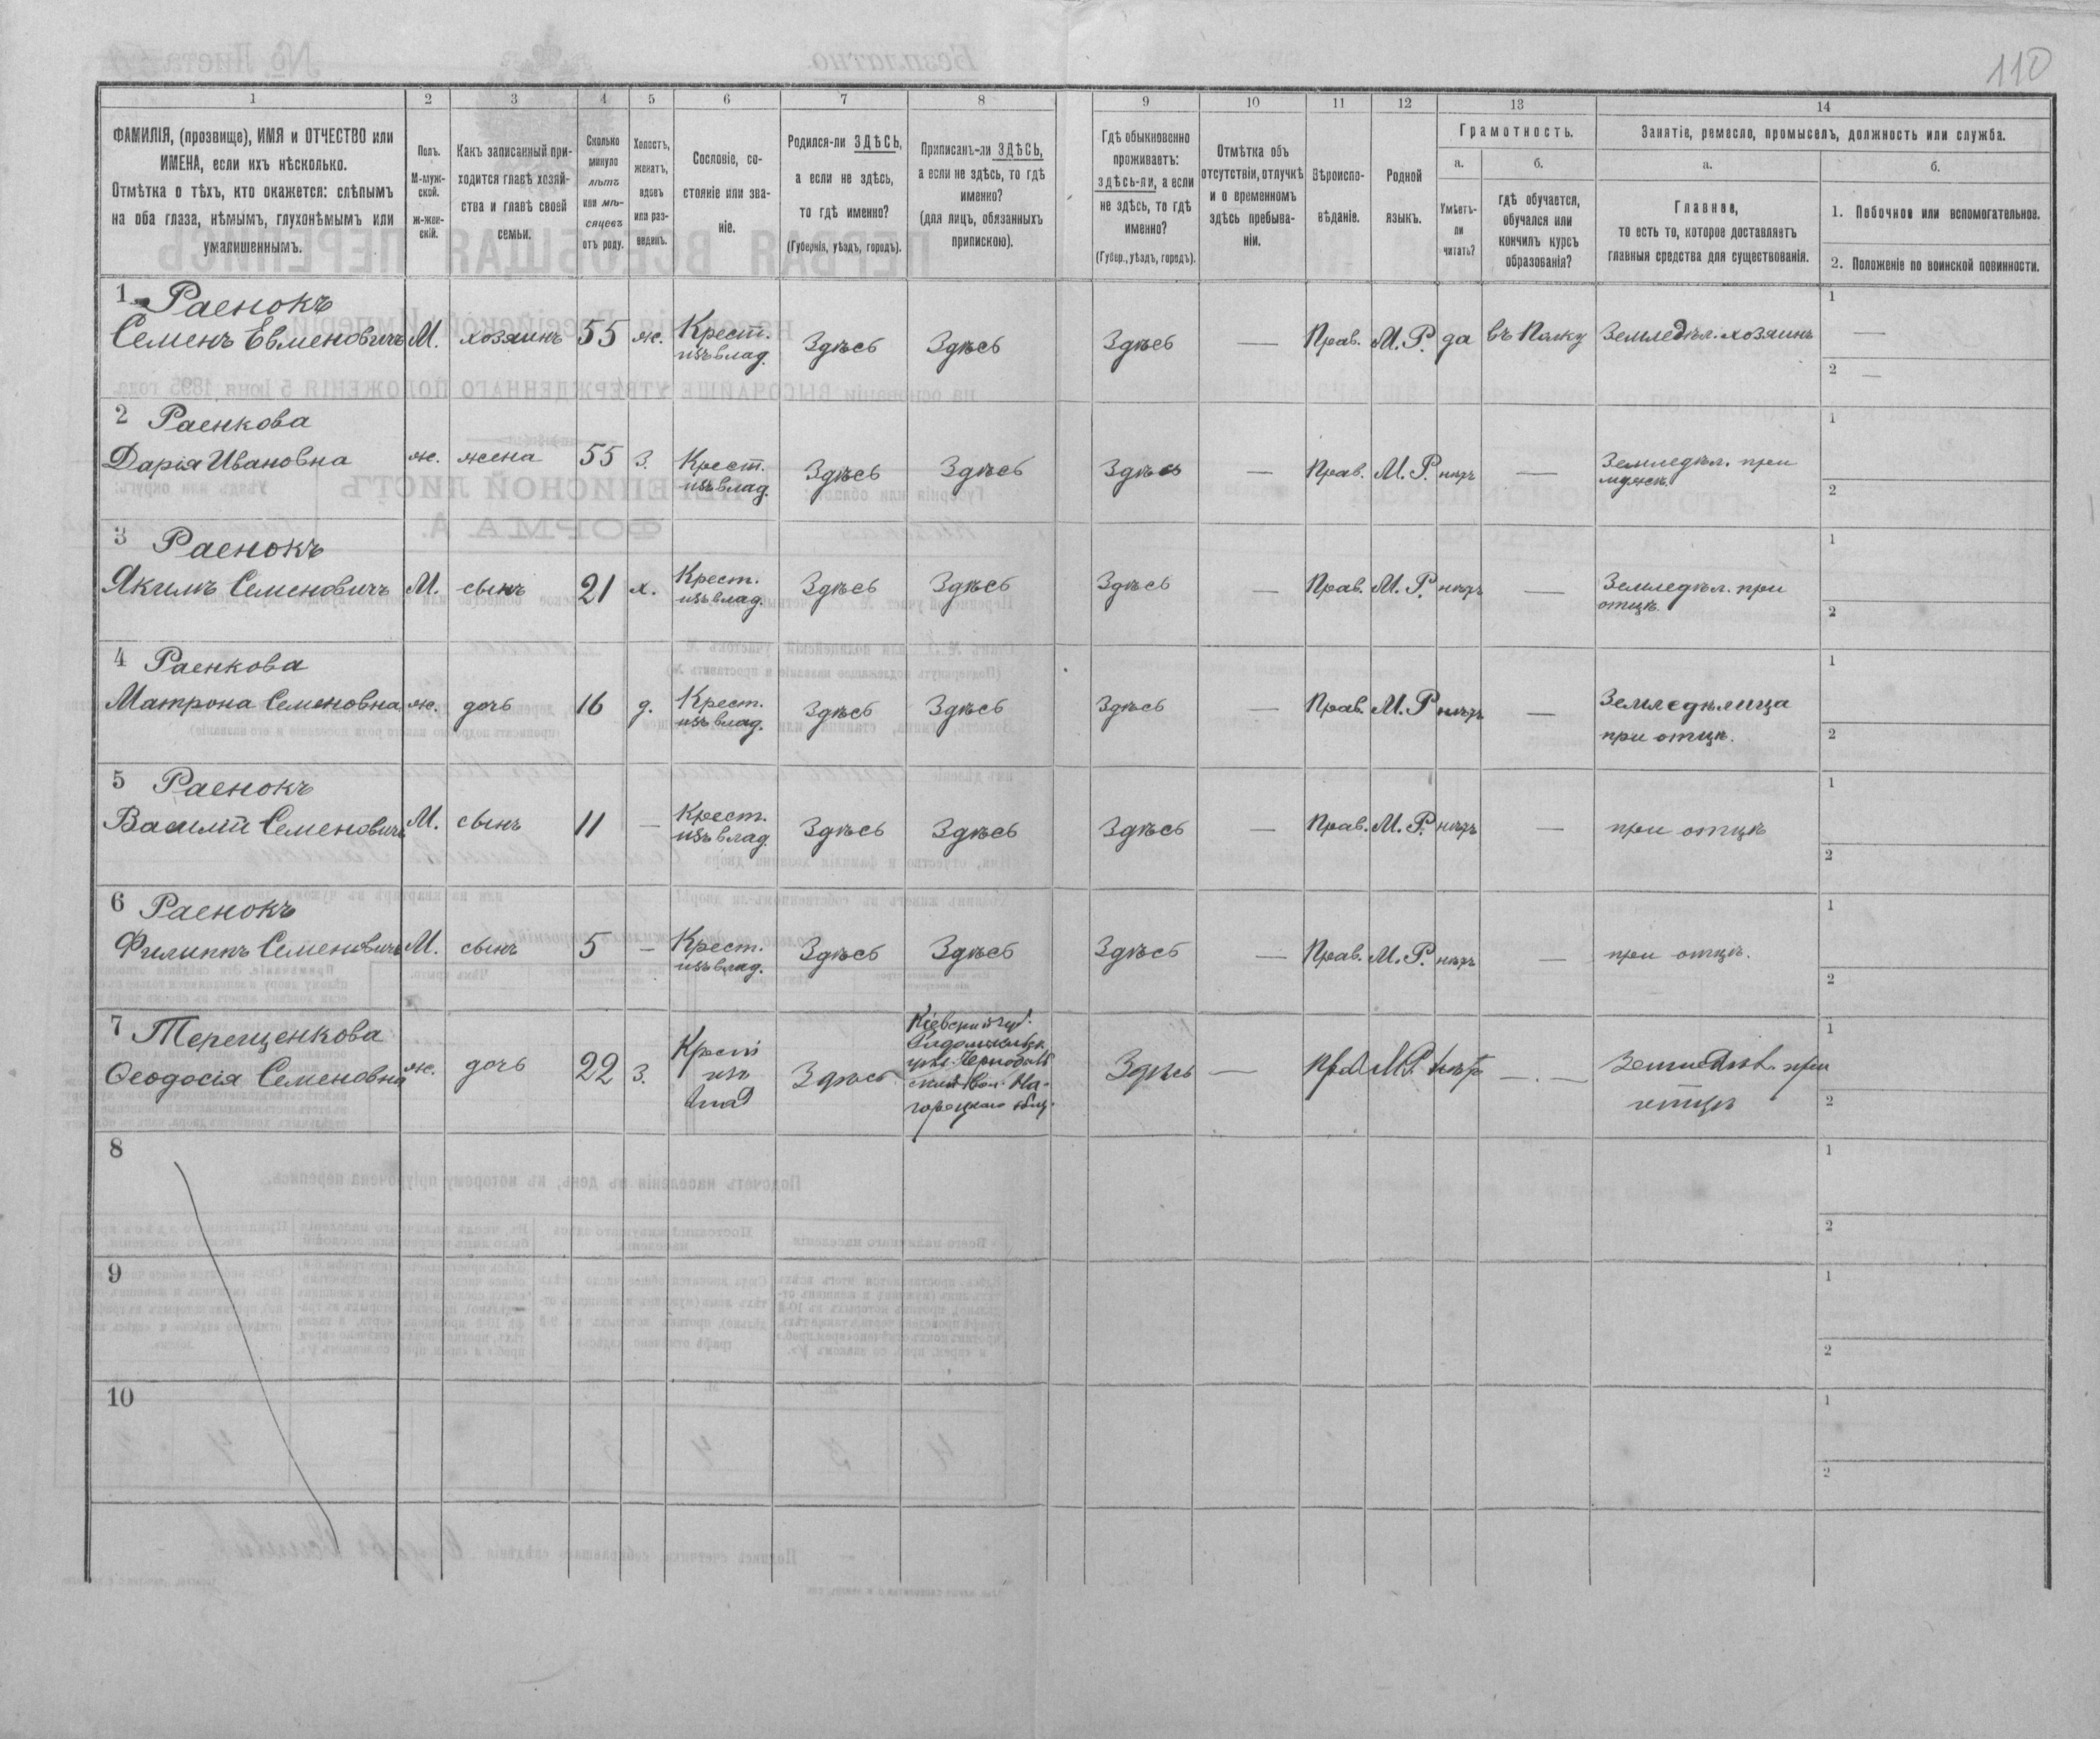 110
1 2 3 4 5 6 7 8 9 10 11 12 13 14
ФАМИЛІЯ, (прозвище), ИМЯ и ОТЧЕСТВО или
ИМЕНА, если ихъ нѣсколько.
Отмѣтка о тѣхъ, кто окажется: слѣпымъ
на оба глаза, нѣмымъ, глухонѣмымъ или
умалишеннымъ.
Полъ.
М-муж-
ской.
ж-жен-
скій.
Какъ записанный при-
ходится главѣ хозяй-
ства и главѣ своей
семьи.
Сколько
минуло
лѣтъ
или мѣ-
сяцевъ
отъ роду.
Холостъ,
женатъ,
вдовъ
или раз-
веденъ.
Сословіе, со-
стояніе или зва-
ніе.
Родился-ли ЗДѢСЬ,
а если не здѣсь,
то гдѣ именно?
(Губернія, уѣздъ, городъ).
Приписанъ-ли ЗДѢСЬ,
а если не здѣсь, то гдѣ
именно?
(для лицъ, обязанныхъ
припискою).
Гдѣ обыкновенно
проживаетъ:
здѣсь-ли, а если
не здѣсь, то гдѣ
именно?
(Губер., уѣздъ, городъ).
Отмѣтка объ
отсутствіи, отлучкѣ
и о временномъ
здѣсь пребыва-
ніи.
Вѣроиспо-
вѣданіе.
Родной
языкъ.
Грамотность.
а.
Умѣетъ-
ли
читать?
б.
гдѣ обучается,
обучался или
кончилъ курсъ
образованія?
Занятіе, ремесло, промыселъ, должность или служба.
а.
Главное,
то есть то, которое доставляетъ
главныя средства для существованія.
б.
1. Побочное или вспомогательное.
2. Положеніе по воинской повинности.
1 Раенокъ
Семенъ Евменовичъ М. хозяинъ 55 ж. Крест. изъ влад. Здѣсь Здѣсь Здѣсь — Прав. М.Р. да въ Полку Земледѣл. хозяинъ 1 — 2 —
2 Раенкова
Дарія Ивановна ж. жена 55 З. Крест. изъ влад. Здѣсь Здѣсь Здѣсь — Прав. М.Р. нѣтъ — Земледѣл. при мужѣ. 1 2
3 Раенокъ
Якимъ Семеновичъ М. сынъ 21 х. Крест. изъ влад. Здѣсь Здѣсь Здѣсь — Прав. М.Р. нѣтъ — Земледѣл. при отцѣ. 1 2
4 Раенкова
Матрона Семеновна ж. дочь 16 д. Крест. изъ влад. Здѣсь Здѣсь Здѣсь — Прав. М.Р нѣтъ — Земледѣлица при отцѣ. 1 2
5 Раенокъ
Василій Семеновичъ М. сынъ 11 — Крест. изъ влад. Здѣсь Здѣсь Здѣсь — Прав. М.Р. нѣтъ — при отцѣ 1 2
6 Раенокъ
Филиппъ Семеновичъ М. сынъ 5 — Крест. изъ влад. Здѣсь Здѣсь Здѣсь — Прав. М.Р. нѣтъ — при отцѣ. 1 2
7 Терещенкова
Ѳеодосія Семеновна ж. дочь 22 З. Крест изъ влад Здѣсь Кіевской губ. Здѣсь — М.Р. нѣтъ — . — Земледѣл. при отцѣ 1 2
8 1 2
9 1 2
10 1 2